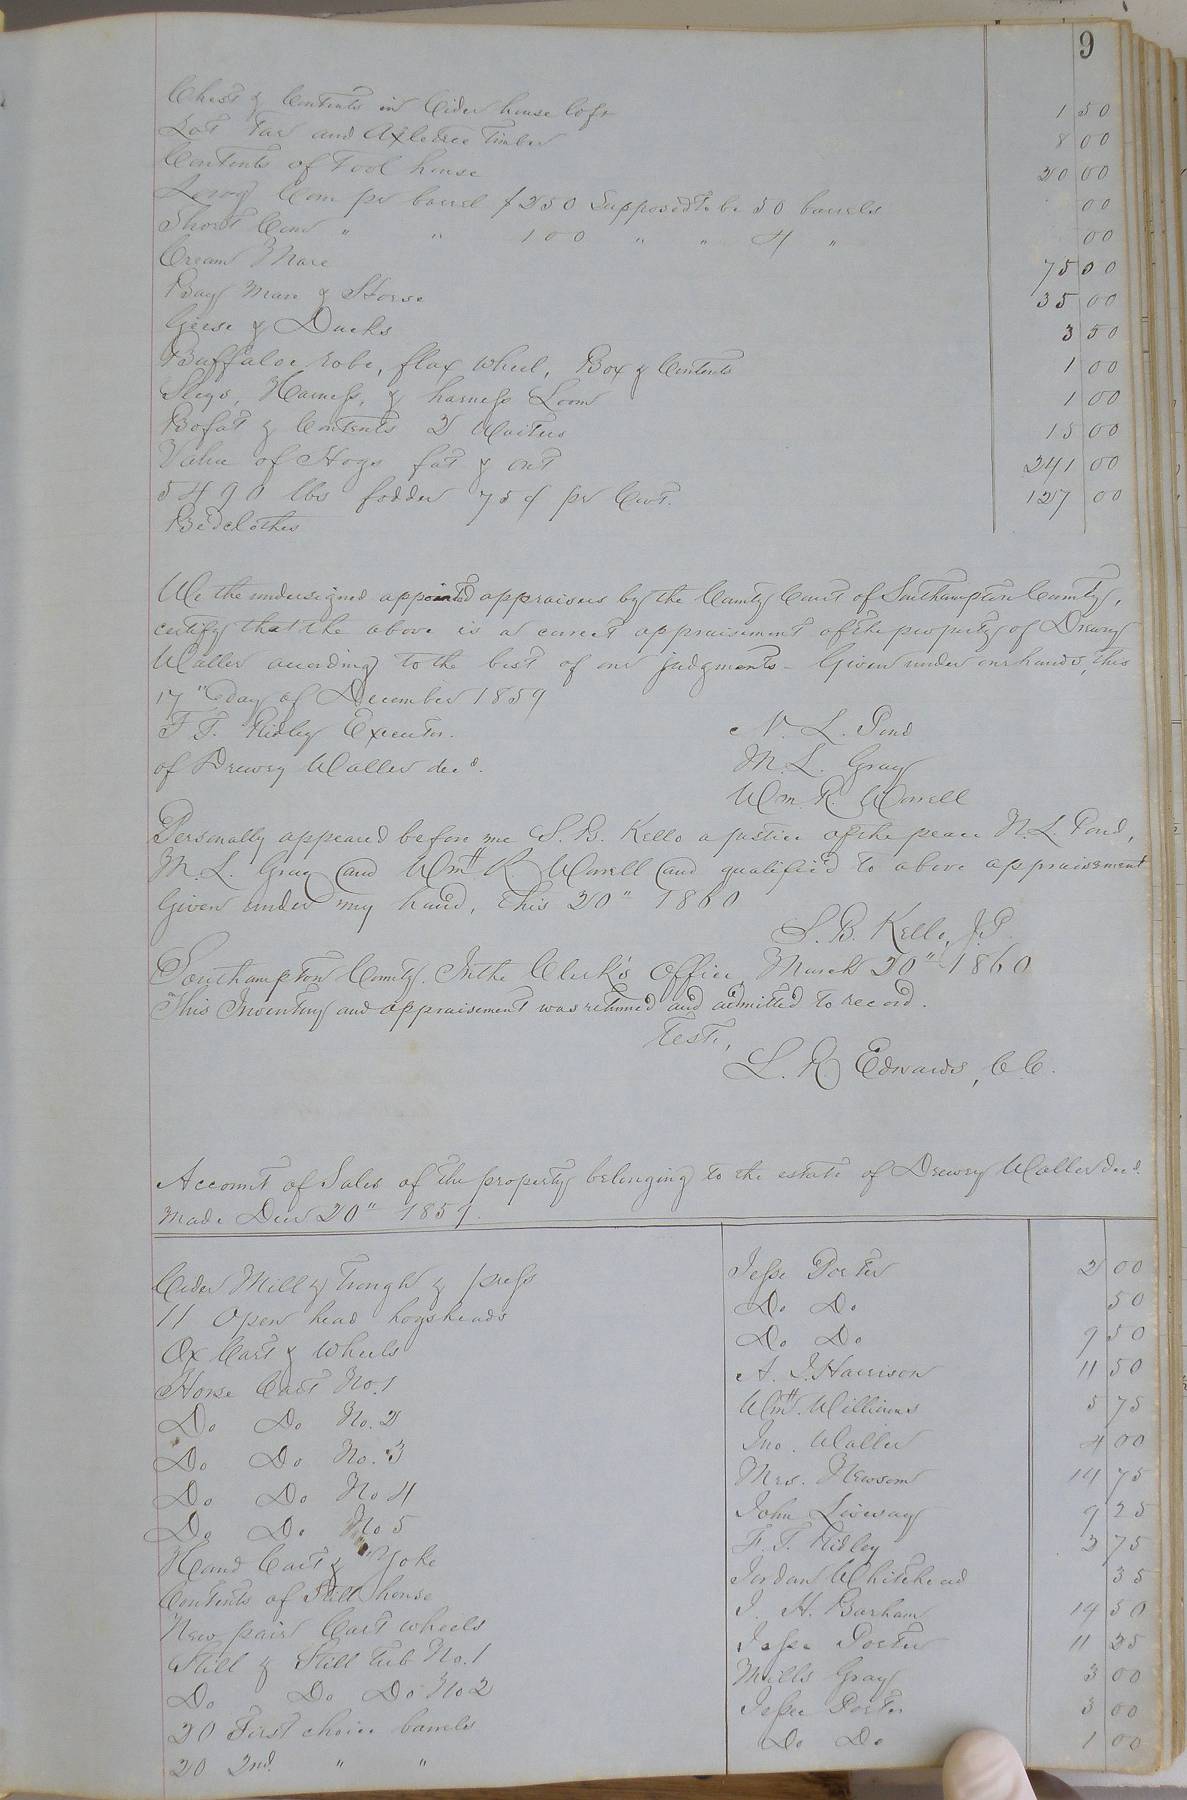 9
Chest & Contents in Cider house loft 1 50
Lot Tar and Axletree Timber 8 00
Contents of Tool house 20 00
Long Corn pr barrel $250 Supposed to be 50 barrels 00
Short Corn " " 100 " " 4 " 00
Cream Mare 75 00
Bay Mare & Horse 35 00
Geese & Ducks 3 50
Buffaloe robe, flax wheel, Box & Contents 1 00
Slays, Harness, & harness Loom 1 00
Bofat & Contents 2 Waiters 15 00
Value of Hogs fat & out 241 00
5490 lbs fodder 75¢ pr Cwt. 127 00
Bedclothes
We the undersigned appointed appraisers by the County Court of Southampton County,
certify that the above is a correct appraisement of the property of Drewry
Waller according to the best of our judgments - Given under our hands, this
17" day of December 1859
F. T. Ridley Executor. N. L. Pond
of Drewry Waller decd. M. L. Gray
Wm. R. Worrell
Personally appeared before me S. B. Kello a justice of the peace N. L. Pond,
M. L. Gray and Wm R Worrell and qualified to above appraisement
Given under my hand, this 20" 1860
S. B. Kello, J.P.
Southampton County. In the Clerk's Office March 20" 1860
This Inventory and appraisement was returned and admitted to record.
Teste,
L. R. Edwards, C.C.
Account of Sales of the property belonging to the estate of Drewry Waller decd.
made Decr 20" 1859.
Cider Mill & Trough & press Jesse Porter 2 00
11 Open head hogsheads Do Do 50
Ox Cart & Wheels Do Do 9 50
Horse Cart No. 1 A. J. Harrison 11 50
Do Do No. 2 Wm. Williams 5 75
Do Do No. 3 Jno. Waller 4 00
Do Do No 4 Mrs. Newsom 14 75
Do Do No 5 John Livesay 9 25
Hand Cart & Yoke F. T. Ridley 3 75
Contents of Still house Jordan Whitehead 35
New pair Cart wheels J. H. Barham 14 50
Still & Still tub No. 1 Jesse Porter 11 25
Do Do Do No 2 Mills Gray 3 00
20 First choice barrels Jesse Porter 3 00
20 2nd. " " Do Do 1 00